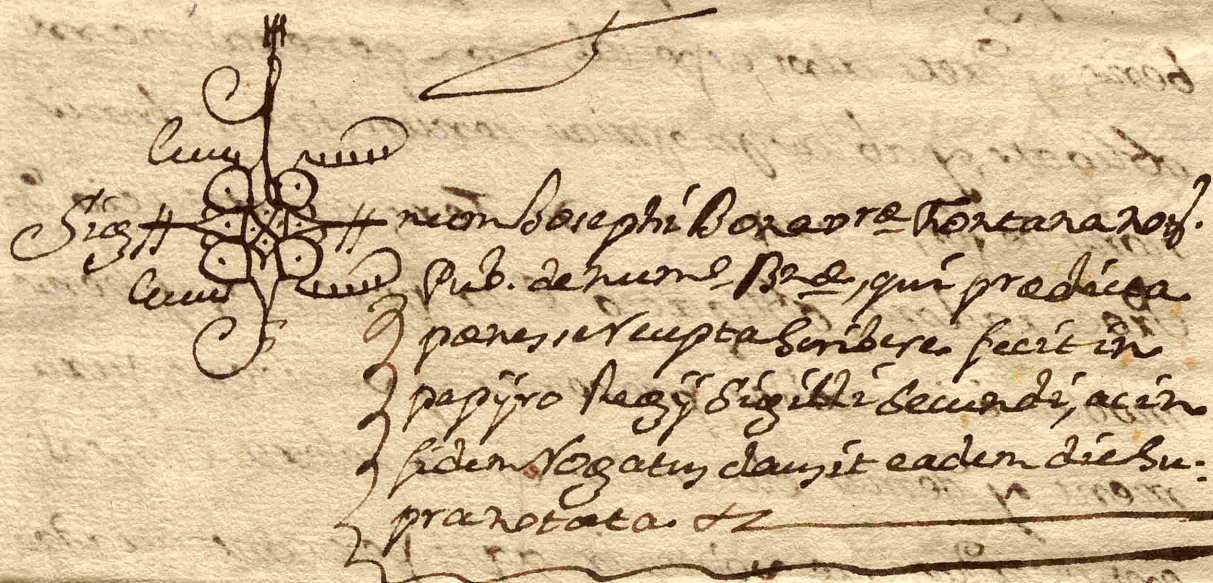 Sig num Josephi Bonavræ Fontana not.
Pub. de numo Bnæ, qui prædicta
pænes se recepta scribere fecit in
papÿro Regÿ Sigilli Secundi, ac in
fidem Rogatus clausit eadem die su-
pranotata. &